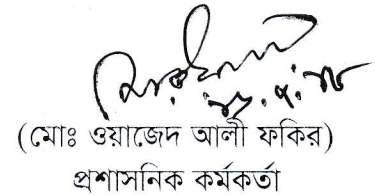 (মোঃ ওয়াজেদ আলী ফকির)
প্রশাসনিক কর্মকর্তা